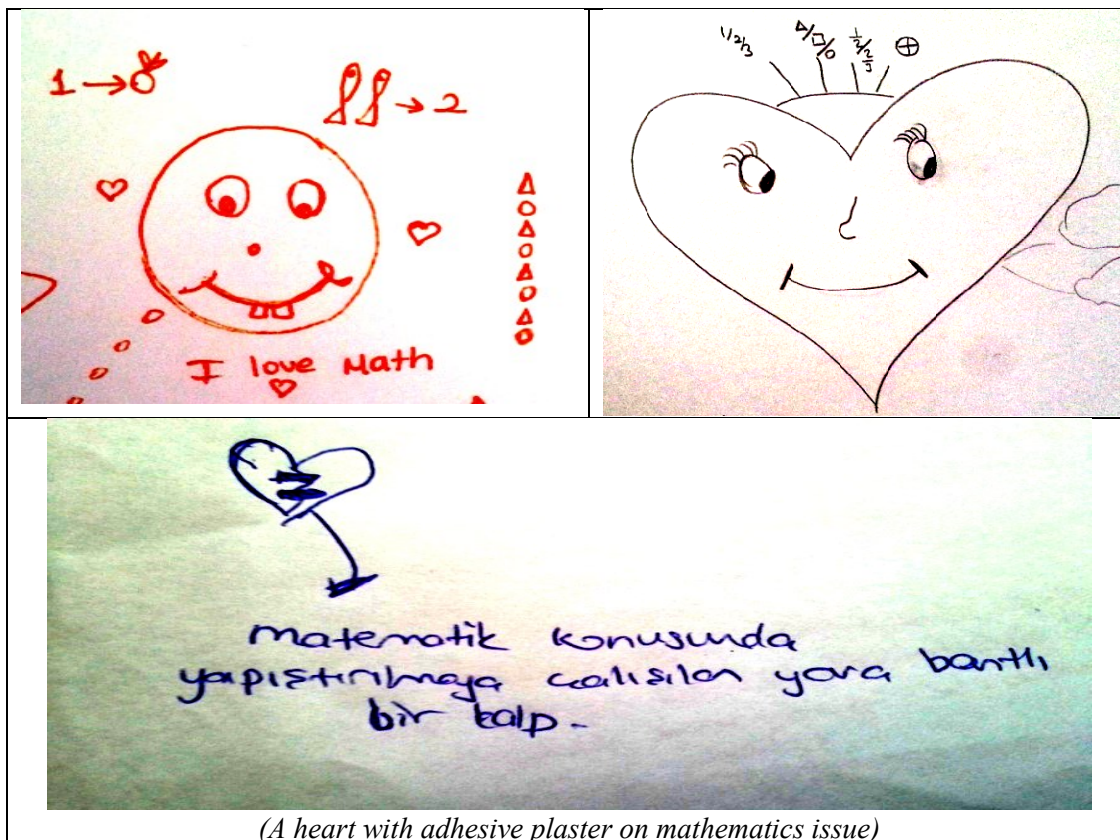 1 →
→ 2
I love Math
1/2/3
Δ/□/0
1/2/2/3
matematik konusunda
yapıştırılmaya çalışılan yara bantlı
bir kalp.
(A heart with adhesive plaster on mathematics issue)